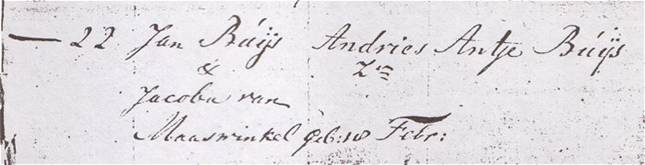 — 22 Jan Búÿs Andries Antje Búÿs
& Zn
Jacoba van
Maaswinkel geb: 10 Febr: